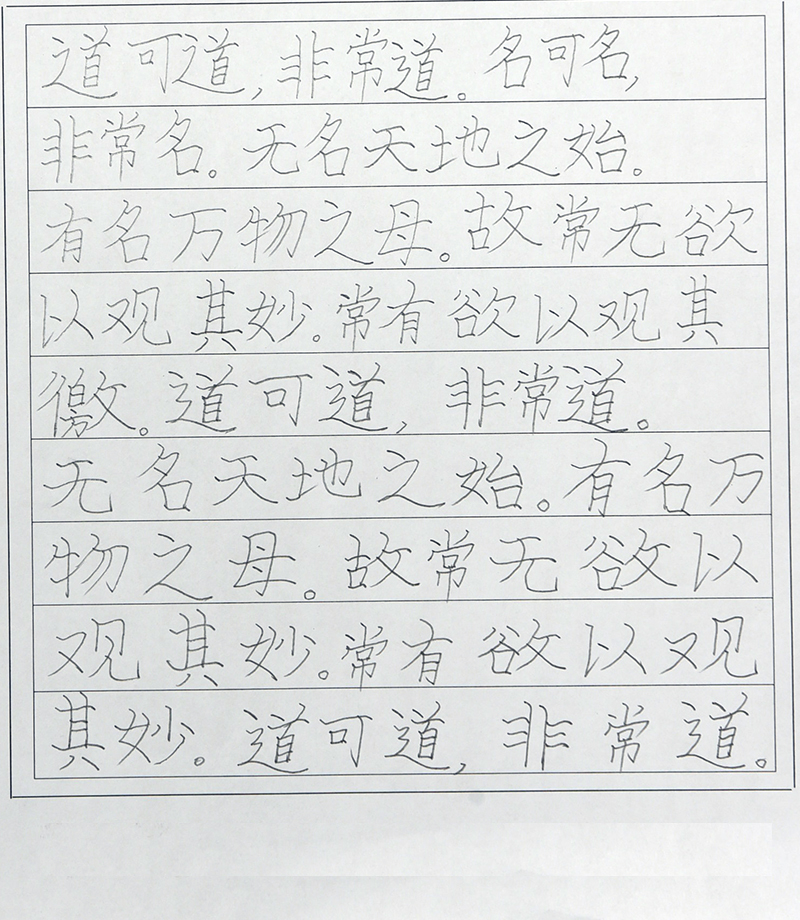 道可道,非常道。名可名,
非常名。无名天地之始。
有名万物之母。故常无欲
以观其妙。常有欲以观其
徼。道可道,非常道。
无名天地之始。有名万
物之母。故常无欲以
观其妙。常有欲以观
其妙。道可道,非常道。